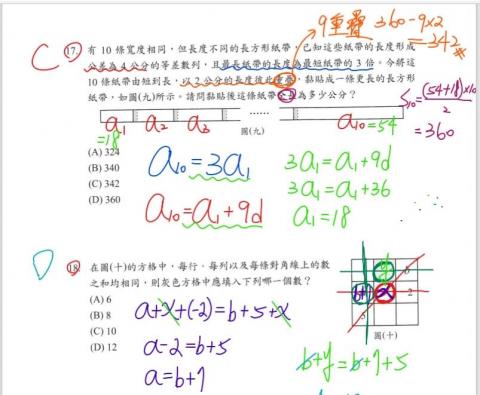 9重疊 360-9×2
=342
C 17. 有 10 條寬度相同，但長度不同的長方形紙帶，已知這些紙帶的長度形成
公差為 4 公分的等差數列，且最長紙帶的長度為最短紙帶的 3 倍。今將這
10 條紙帶由短到長，以 2 公分的長度彼此重疊，黏貼成一條更長的長方形
紙帶，如圖(九)所示。請問黏貼後這條紙帶全長為多少公分？
S10=(54+18)×10/2
=360
a1 a2 a3 …… a10=54
=18
圖(九)
(A) 324
(B) 340
(C) 342
(D) 360
a10=3a1
a10=a1+9d
3a1=a1+9d
3a1=a1+36
a1=18
D 18. 在圖(十)的方格中，每行、每列以及每條對角線上的數
之和均相同，則灰色方格中應填入下列哪一個數？
(A) 6
(B) 8
(C) 10
(D) 12
a+x+(-2)=b+5+x
a-2=b+5
a=b+7
y
b+7 x -2
5
圖(十)
b+y=b+7+5